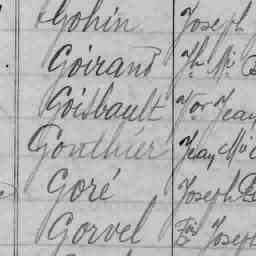 Gohin Joseph
Goirand Jh Mie
Goisbault Vor Jean
Gonthier Jean Mie
Goré Joseph
Gorvel Fois Joseph